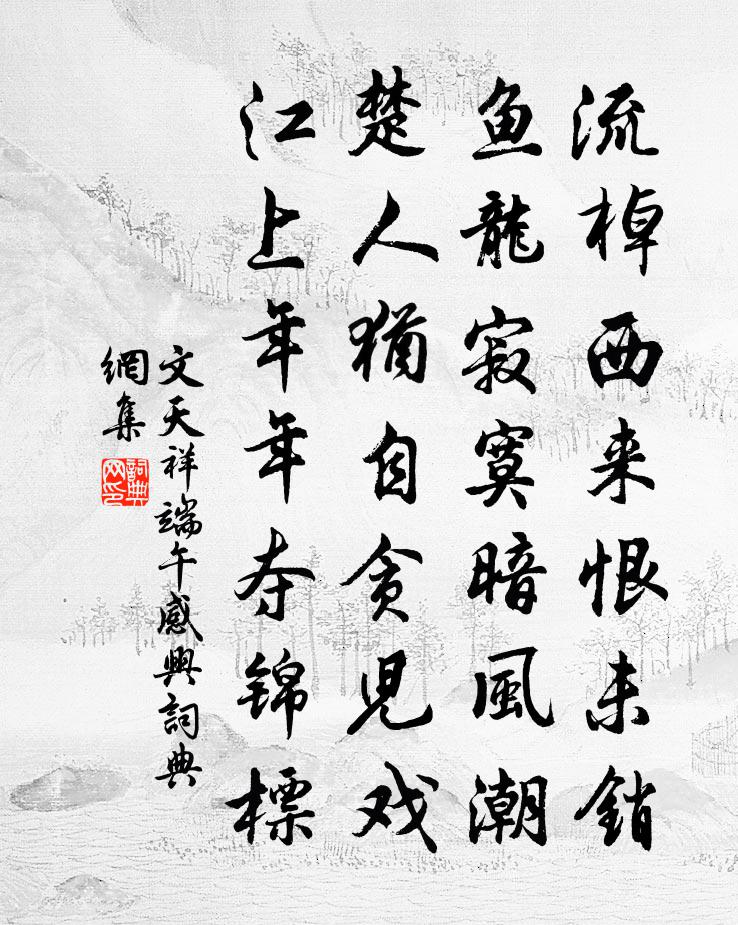 流棹西来恨未銷
鱼龍寂寞暗風潮
楚人猶自贪児戏
江上年年夺锦標
文天祥端午感興詞典
網集
詞典
网印